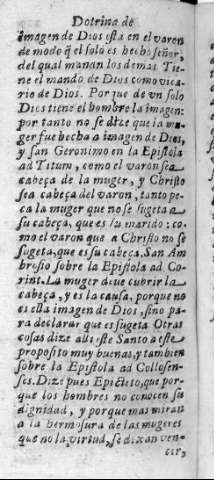 Dotrina de
imagen de Dios esta en el varon
de modo q̃ el solo es hecho señor,
del qual manan los demas. Tie-
ne el mando de Dios como vica-
rio de Dios. Porque de vn solo
Dios tiene el hombre la imagen:
por tanto no se dize que la mu-
ger fue hecha a imagen de Dios,
y san Geronimo en la Epistola
ad Titum, como el varon sea
cabeça de la muger, y Christo
sea cabeça del varon, tanto pe-
ca la muger que no se sugeta a
su cabeça, que es su marido: co-
mo el varon que a Christo no se
sugeta, que es su cabeça. San Am
brosio sobre la Epistola ad Co-
rint. La muger deue cubrir la
cabeça, y es la causa, porque no
es ella imagen de Dios, sino pa-
ra declarar que es sugeta. Otras
cosas dize alli este Santo a este
proposito muy buenas, y tambien
sobre la Epistola ad Collosen-
ses. Dize pues Epicteto, que por-
que los hombres no conocen su
dignidad, y porque mas miran
a la hermosura de las mugeres
que no la virtud, se dexan ven-
cer,